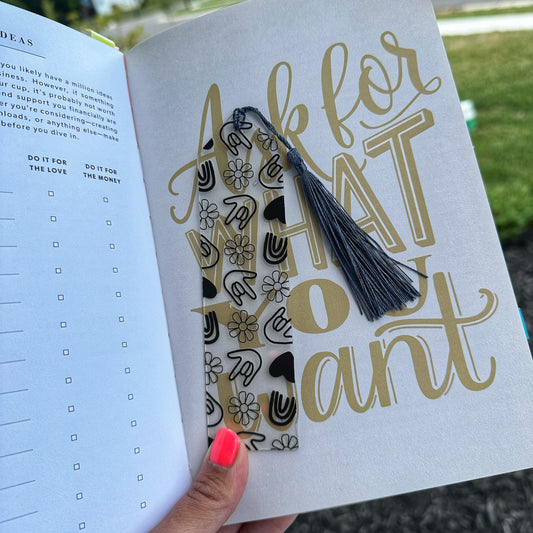 DEAS
you likely have a million ideas
siness. However, if something
our cup, it's probably not worth
nd support you financially are
er you're considering—creating
nloads, or anything else—make
before you dive in.
DO IT FOR
THE LOVE
DO IT FOR
THE MONEY
Ask for
WHAT
YOU
want